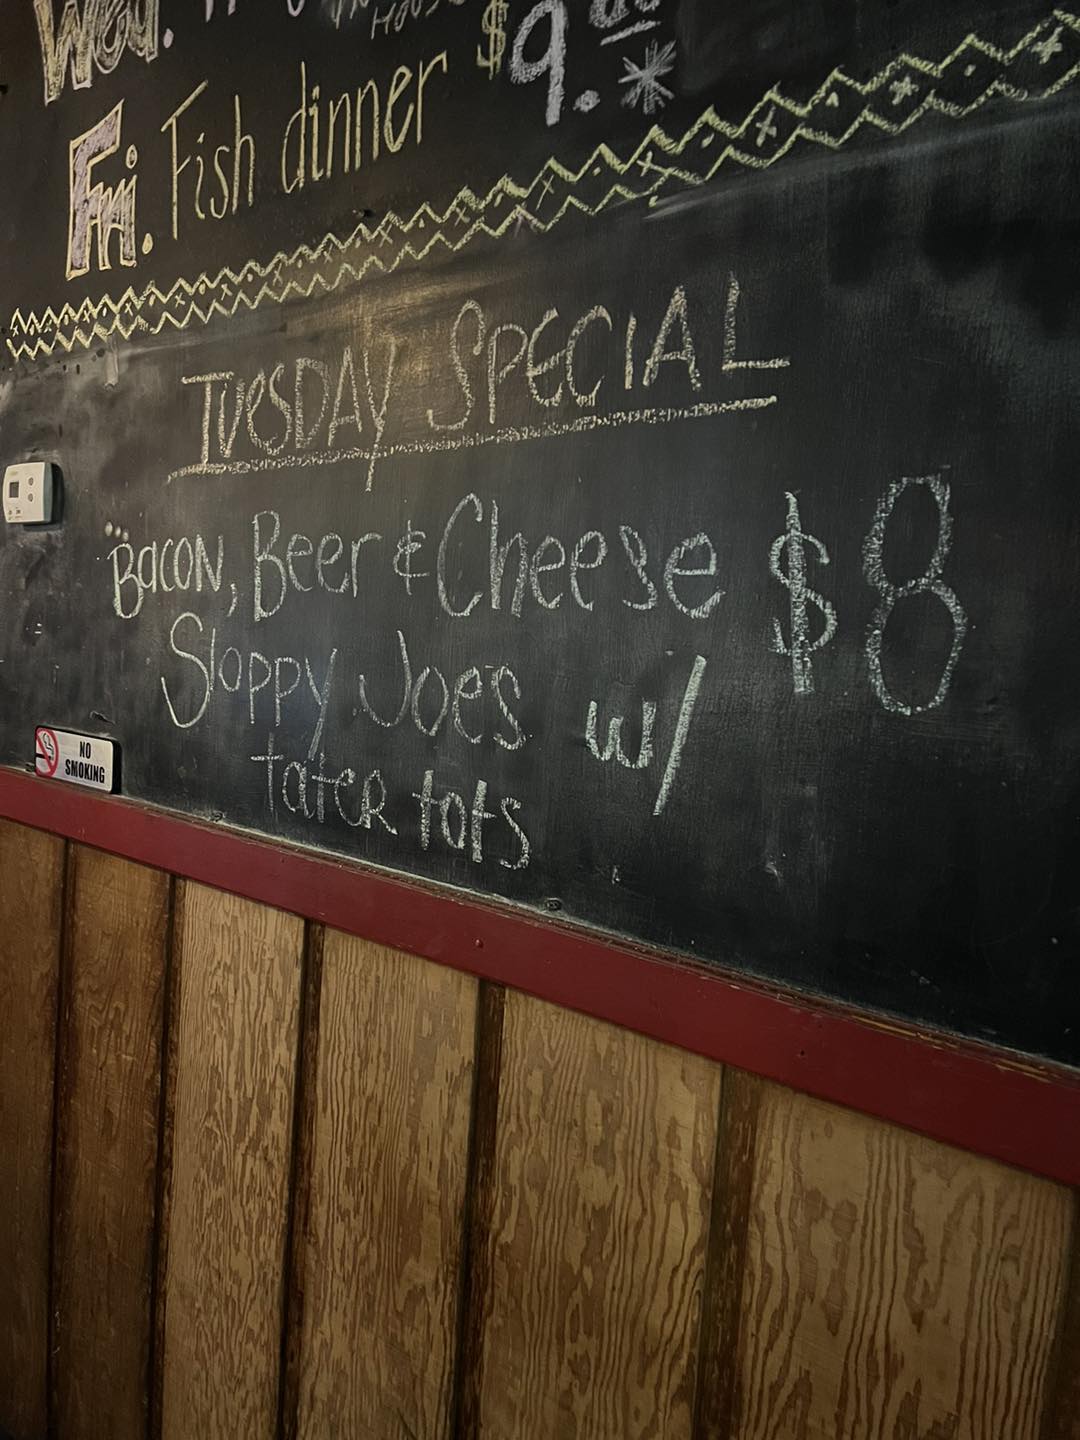 Wed.
Fri. Fish dinner $9.00 *
TUESDAY SPECIAL
BACON, Beer & Cheese $8
Sloppy Joe's w/
tater tots
NO
SMOKING